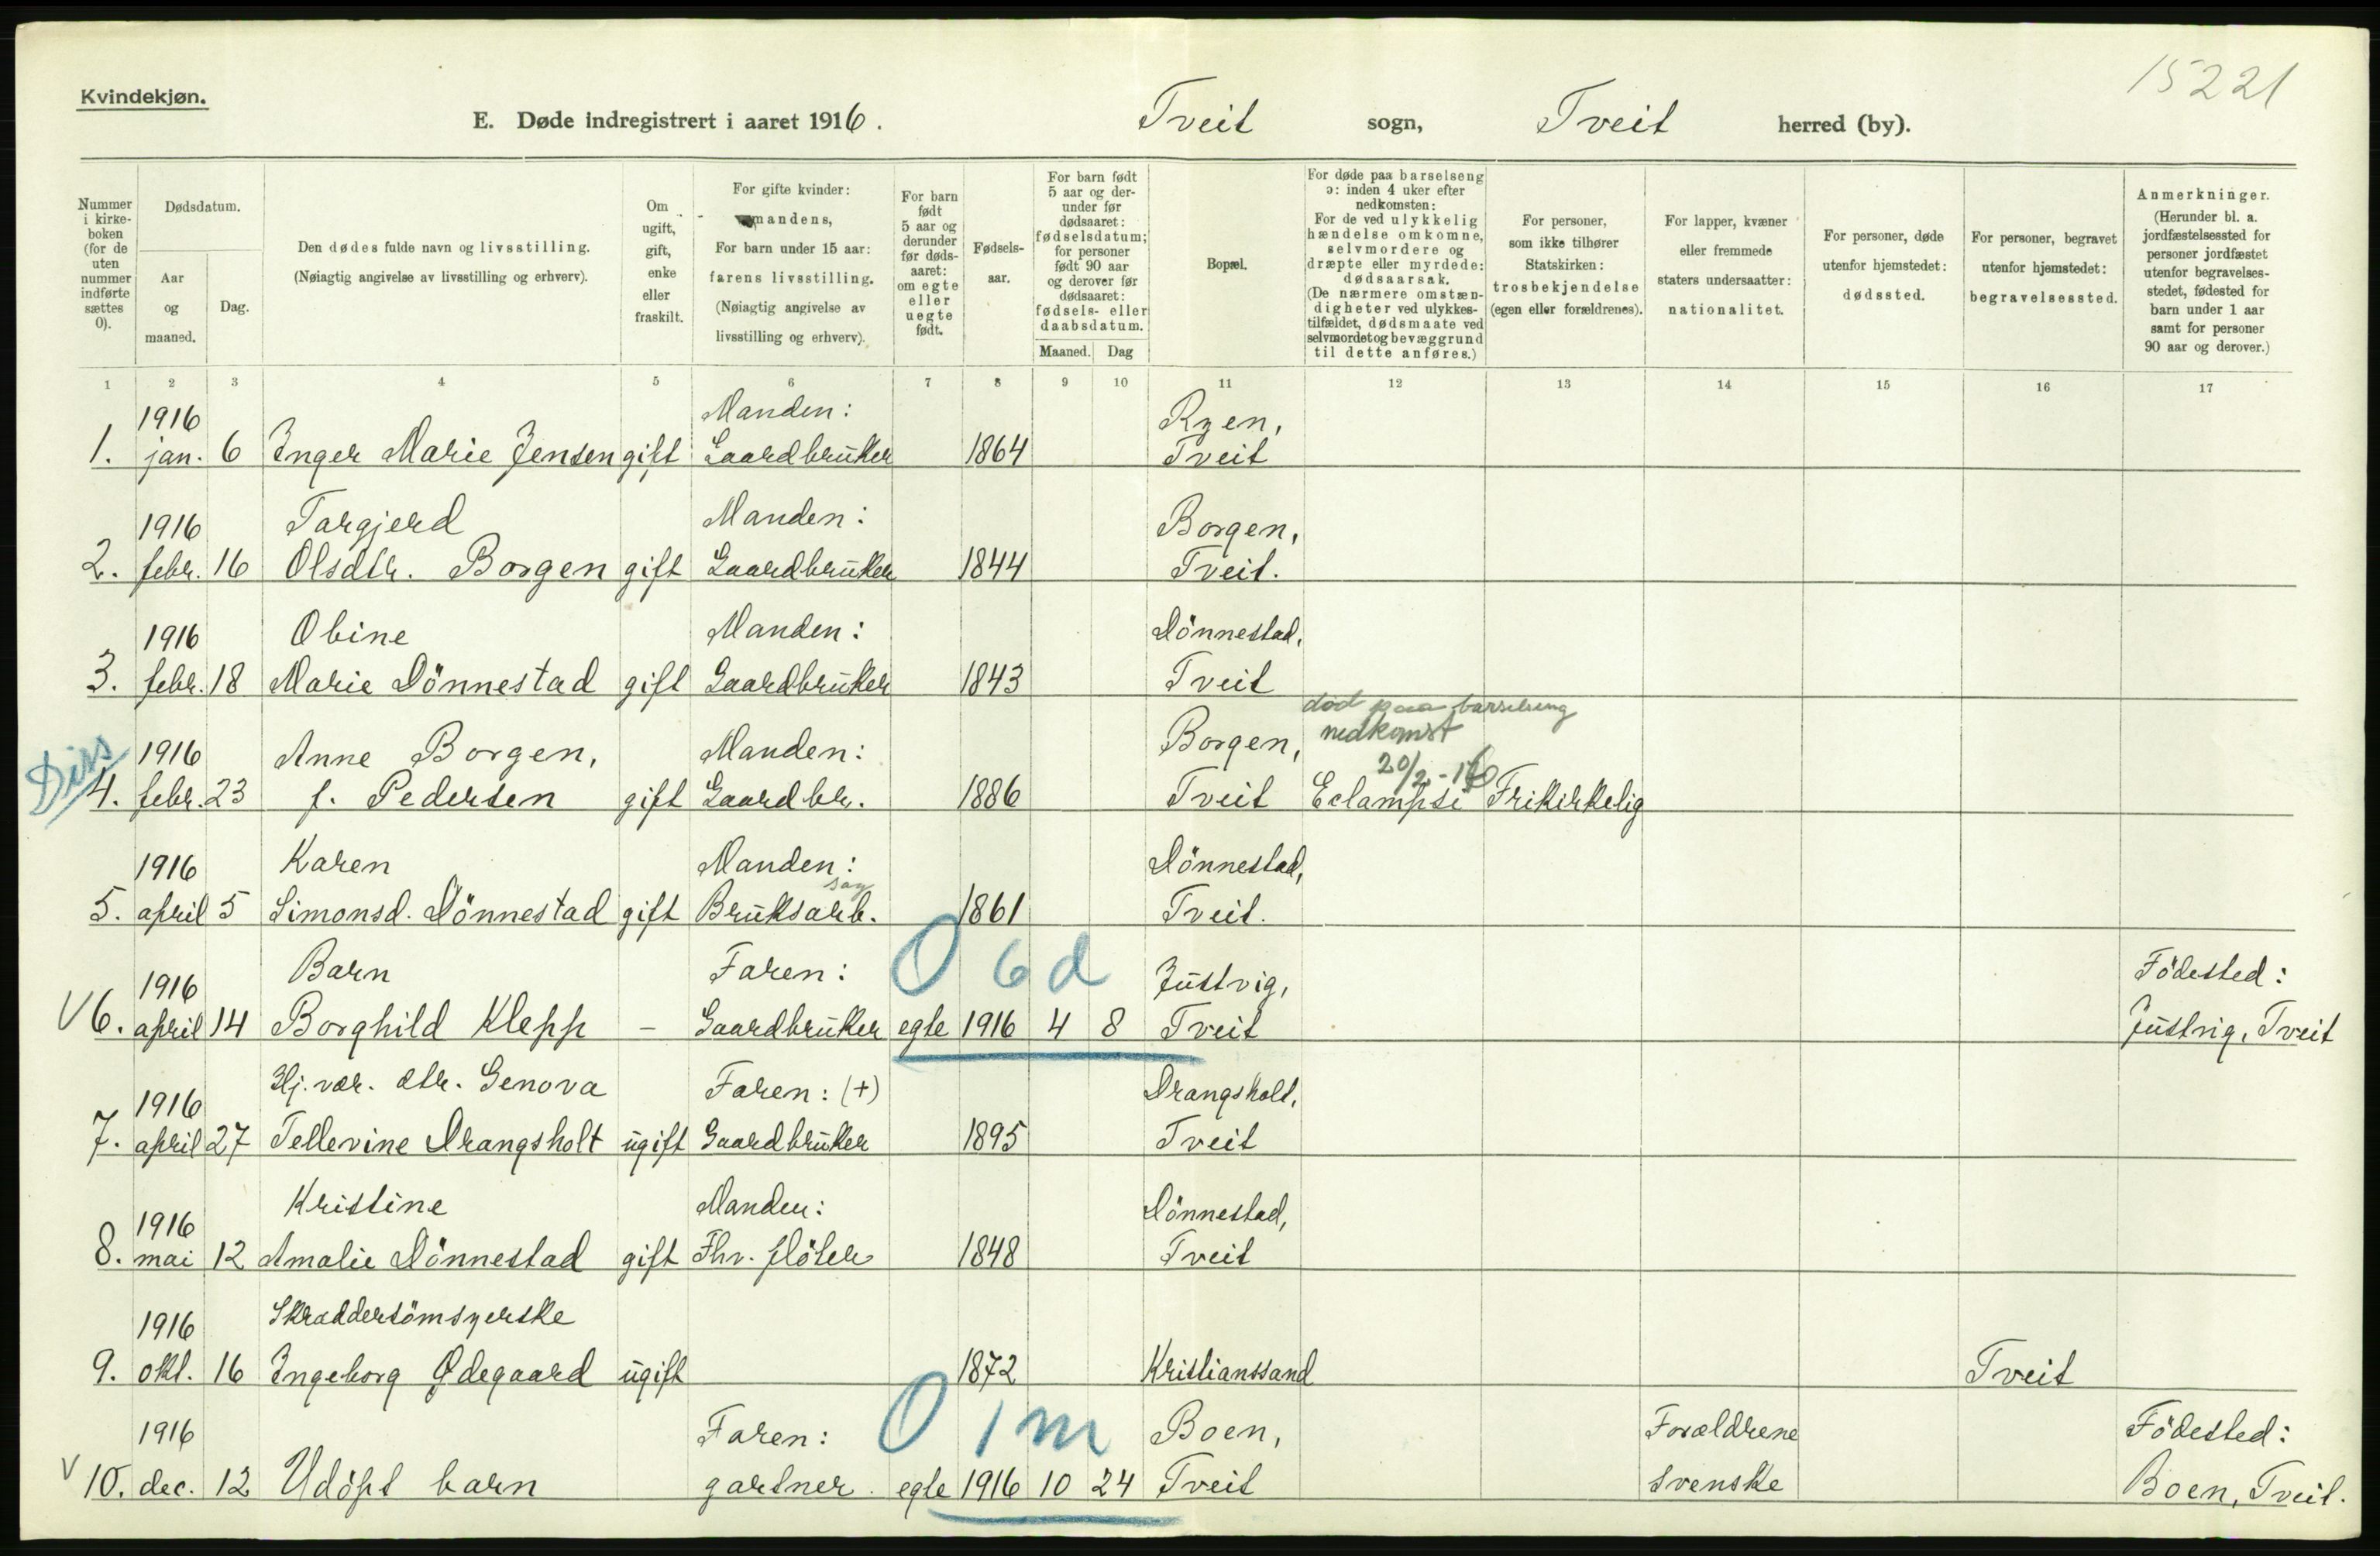 15221
Kvindekjøn.
E. Døde indregistrert i aaret 1916. Tveit sogn, Tveit herred (by).
Nummer i kirke-boken (for de uten nummer indførte sættes 0).
Dødsdatum.
Aar og maaned.
Dag.
Den dødes fulde navn og livsstilling.
(Nøiagtig angivelse av livsstilling og erhverv).
Om ugift, gift, enke eller fraskilt.
For gifte kvinder:
mandens,
For barn under 15 aar:
farens livsstilling.
(Nøiagtig angivelse av
livsstilling og erhverv).
For barn født 5 aar og derunder før døds-aaret: om egte eller uegte født.
Fødsels-aar.
For barn født 5 aar og der-under før dødsaaret: fødselsdatum; for personer født 90 aar og derover før dødsaaret: fødsels- eller daabsdatum.
Maaned. Dag
Bopæl.
For døde paa barselseng
ɔ: inden 4 uker efter
nedkomsten:
For de ved ulykkelig
hændelse omkomne,
selvmordere og
dræpte eller myrdede:
dødsaarsak.
(De nærmere omstæn-
digheter ved ulykkes-
tilfældet, dødsmaate ved
selvmordet og bevæggrund
til dette anføres.)
For personer,
som ikke tilhører
Statskirken:
trosbekjendelse
(egen eller forældrenes).
For lapper, kvæner
eller fremmede
staters undersaatter:
nationalitet.
For personer, døde
utenfor hjemstedet:
dødssted.
For personer, begravet
utenfor hjemstedet:
begravelsessted.
Anmerkninger.
(Herunder bl. a.
jordfæstelsessted for
personer jordfæstet
utenfor begravelses-
stedet, fødested for
barn under 1 aar
samt for personer
90 aar og derover.)
1 2 3 4 5 6 7 8 9 10 11 12 13 14 15 16 17
1916 Manden: Ryen,
1. jan. 6 Inger Marie Jensen gift Gaardbruker 1864 Tveit
1916 Targjerd Manden: Borgen,
2. febr. 16 Olsdtr. Borgen gift Gaardbruker 1844 Tveit.
1916 Obine Manden: Dönnestad,
3. febr. 18 Marie Dönnestad gift Gaardbruker 1843 Tveit
død paa barselseng
Diss 1916 Anne Borgen, Manden: Borgen, nedkomst
20/2-16
4. febr. 23 f. Pedersen gift Gaardbr. 1886 Tveit Eclampsi Frikirkelig
1916 Karen Manden: Dönnestad,
sag
5. april 5 Simonsd. Dönnestad gift Bruksarb. 1861 Tveit.
1916 Barn Faren: O 6 d Justvig, Födested:
V 6. april 14 Borghild Klepp - Gaardbruker egte 1916 4 8 Tveit Justvig, Tveit
1916 Hj.vær. dtr. Genova Faren: (+) Drangsholt,
7. april 27 Tellevine Drangsholt ugift Gaardbruker 1895 Tveit
1916 Kristine Manden: Dönnestad,
8. mai 12 Amalie Dönnestad gift Fhv. fløter 1848 Tveit
1916 Skraddersömsyerske
9. okt. 16 Ingeborg Ødegaard ugift 1872 Kristianssand Tveit
1916 Faren: O 1 m Boen, Forældrene Födested:
V 10. dec. 12 Udöpt barn gartner. egte 1916 10 24 Tveit svenske Boen, Tveit.